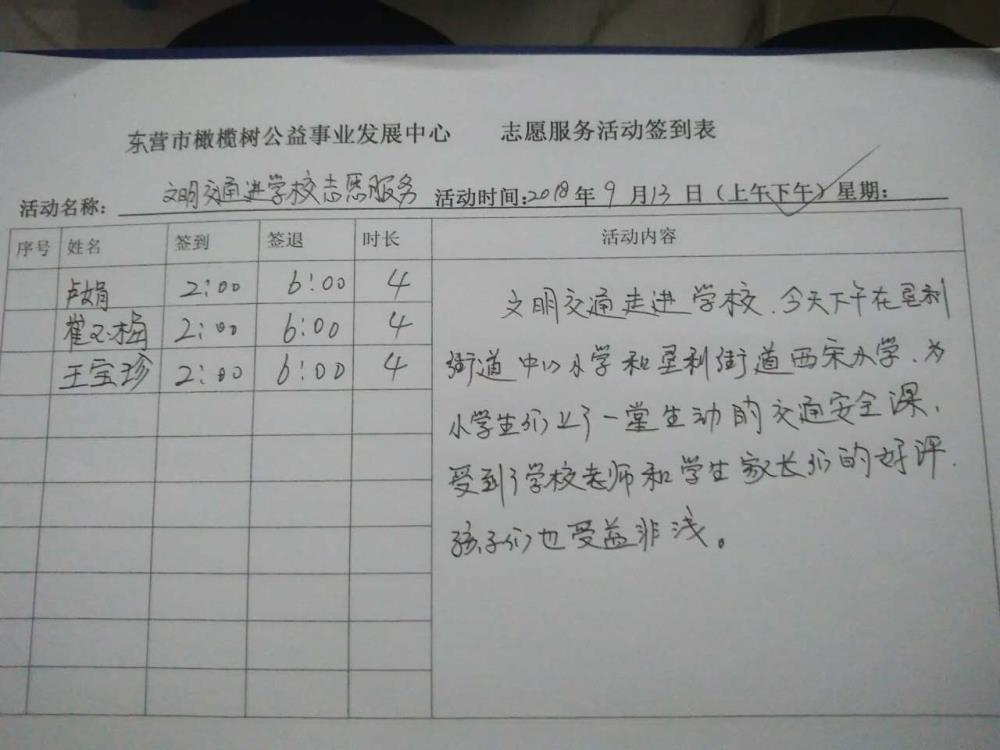 东营市橄榄树公益事业发展中心 志愿服务活动签到表
活动名称: 文明交通进学校志愿服务 活动时间:2018年9月13日（上午下午）星期:
序号 姓名 签到 签退 时长 活动内容
卢娟 2:00 6:00 4
崔玉梅 2:00 6:00 4
王宝珍 2:00 6:00 4
文明交通走进学校.今天下午在垦利
街道中心小学和垦利街道西宋小学、为
小学生们上了一堂生动的交通安全课,
受到了学校老师和学生家长们的好评.
孩子们也受益非浅。